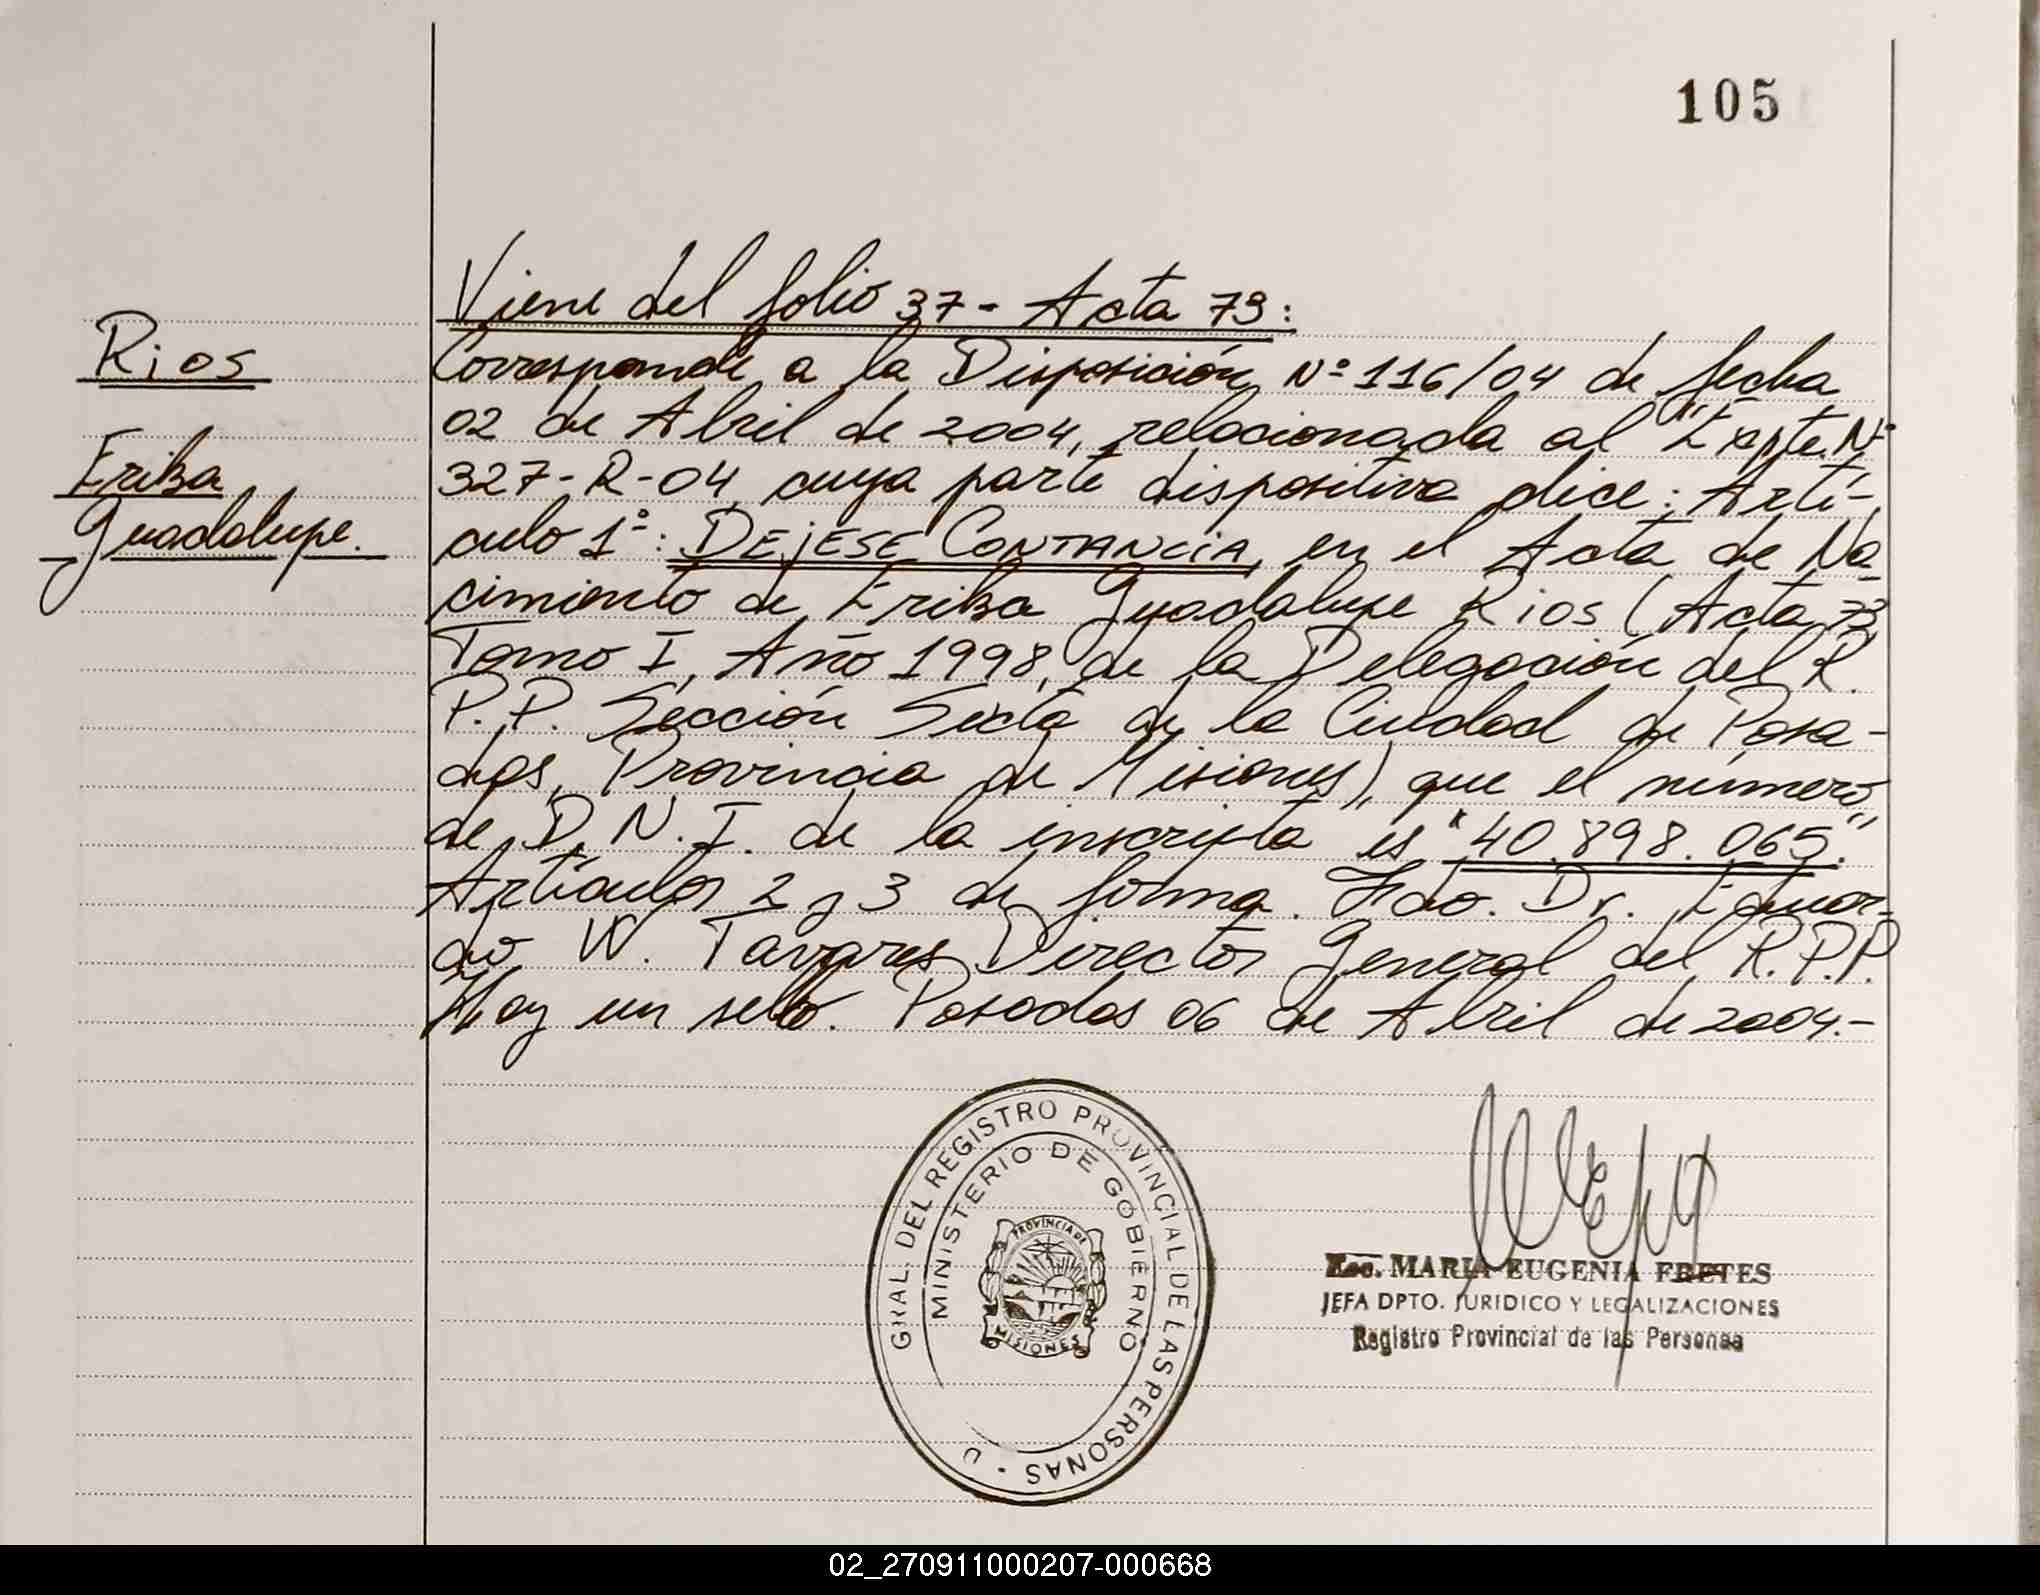 105
Viene del folio 37 - Acta 73:
Rios
Corresponde a la Disposición Nº 116/04 de fecha
02 de Abril de 2004, relacionada al "Expte. Nº
Erika
327-R-04, cuya parte dispositiva dice: Artí-
Guadalupe.
culo 1º: DEJESE CONTANCIA, en el Acta de Na-
cimiento de Erika Guadalupe Rios (Acta 73,
Tomo I, Año 1998, de la Delegación del R.
P.P. Sección Sexta de la Ciudad de Posa-
das, Provincia de Misiones), que el número
de D.N.I. de la inscripta es "40.898.065."
Artículos 2 y 3 de forma. Fdo. Dr. Eduar-
do W. Tavares Director General del R.P.P.
Hay un sello. Posadas 06 de Abril de 2004.-
GRAL. DEL REGISTRO PROVINCIAL DE LAS PERSONAS
MINISTERIO DE GOBIERNO
PROVINCIA DE
MISIONES
Esc. MARIA EUGENIA FRETES
JEFA DPTO. JURIDICO Y LEGALIZACIONES
Registro Provincial de las Personas
02_270911000207-000668